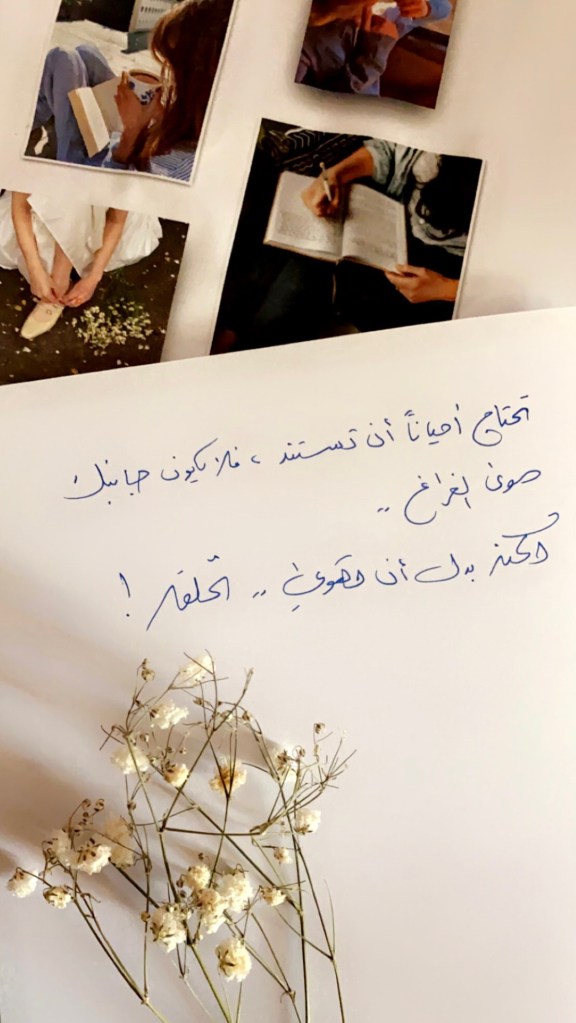 تحتاج أحياناً أن تستند ، فلا يكون بجانبك
سوى الفراغ ..
لكنك بدل أن تهوي .. تحلق !